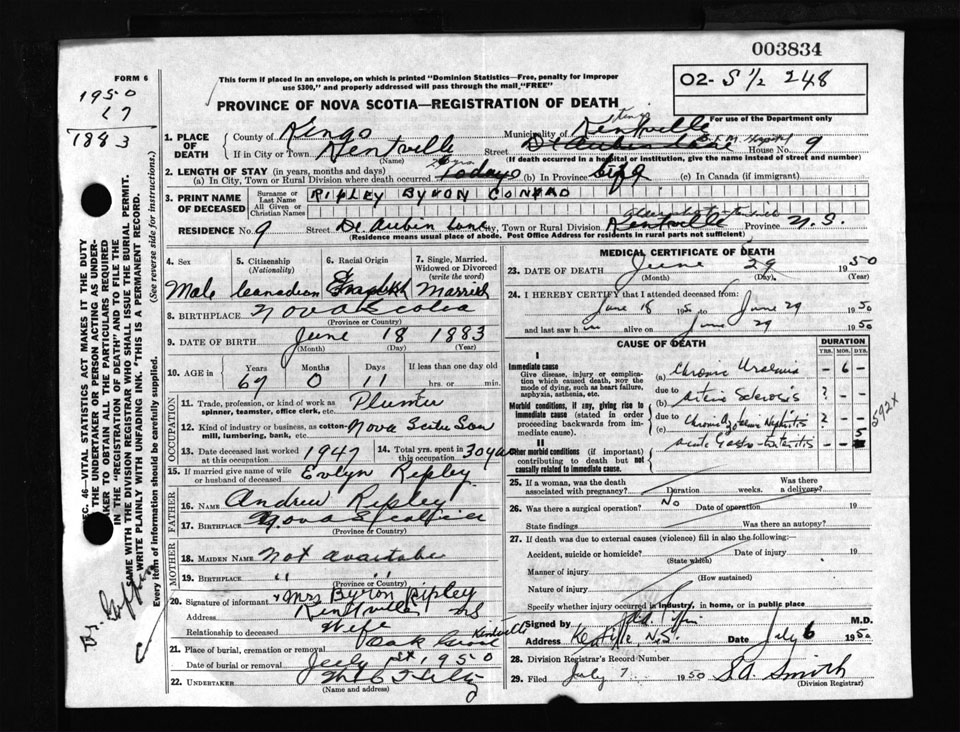 003834
FORM 6
This form if placed in an envelope, on which is printed "Dominion Statistics—Free, penalty for improper
use $300," and properly addressed will pass through the mail "FREE"
O2- S 1/2 248
For use of the Department only
1950
67
1883
PROVINCE OF NOVA SCOTIA—REGISTRATION OF DEATH
1. PLACE OF DEATH County of Kings Municipality of Kings
If in City or Town Kentville (Name) Street House No. 9
(If death occurred in a hospital or institution, give the name instead of street and number)
2. LENGTH OF STAY (in years, months and days)
(a) In City, Town or Rural Division where death occurred (b) In Province life (c) In Canada (if immigrant)
3. PRINT NAME OF DECEASED Surname or Last Name All Given or Christian Names RIPLEY BYRON CONRAD
RESIDENCE No. 9 Street De. Aubin Lane City, Town or Rural Division Kentville Province N.S.
(Residence means usual place of abode. Post Office Address for residents in rural parts not sufficient)
4. Sex Male
5. Citizenship (Nationality) Canadian
6. Racial Origin
7. Single, Married, Widowed or Divorced (write the word) Married
8. BIRTHPLACE Nova Scotia (Province or Country)
9. DATE OF BIRTH June 18 1883
(Month) (Day) (Year)
10. AGE in Years 67 Months 0 Days 11 If less than one day hrs. or min.
OCCUPATION
11. Trade, profession, or kind of work as spinner, teamster, office clerk, etc. Plumber
12. Kind of industry or business, as cotton-mill, lumbering, bank, etc. Nova Scotia
13. Date deceased last worked at this occupation 1947
14. Total yrs. spent in this occupation 30 yrs
15. If married give name of wife or husband of deceased Evlyn Ripley
FATHER
16. NAME Andrew Ripley
17. BIRTHPLACE Nova
(Province or Country)
MOTHER
18. MAIDEN NAME Not
19. BIRTHPLACE " "
(Province or Country)
20. Signature of informant Mrs Byron Ripley
Address Kentville NS
Relationship to deceased Wife
21. Place of burial, cremation or removal Oak Grove Kentville
Date of burial or removal July 1st 1950
22. UNDERTAKER
(Name and address)
MEDICAL CERTIFICATE OF DEATH
23. DATE OF DEATH June 29 1950
(Month) (Day) (Year)
24. I HEREBY CERTIFY that I attended deceased from:
June 18 1950 to June 29 1950
and last saw him alive on June 29 1950
CAUSE OF DEATH DURATION
YRS. MOS. DYS.
I
Immediate cause
Give disease, injury or complication which caused death, not the mode of dying, such as heart failure, asphyxia, asthenia, etc.
(a) Chronic Uraemia - 6 -
due to
(b) Arterio Sclerosis ?
Morbid conditions, if any, giving rise to immediate cause (stated in order proceeding backwards from immediate cause).
due to
(c) Chronic Nephritis ?
II
Other morbid conditions (if important) contributing to death but not causally related to immediate cause.
Acute Gastro-Enteritis 5
592X
25. If a woman, was the death associated with pregnancy? Duration weeks. Was there a delivery?
26. Was there a surgical operation? No Date of operation 19
State findings Was there an autopsy?
27. If death was due to external causes (violence) fill in also the following:
Accident, suicide or homicide? Date of injury 19
(State which)
Manner of injury
(How sustained)
Nature of injury
Specify whether injury occurred in industry, in home, or in public place
Signed by M.D.
Address Kentville N.S. Date July 6 1950
28. Division Registrar's Record Number
29. Filed July 7 1950 S.A. Smith
(Division Registrar)
SEC. 46—VITAL STATISTICS ACT MAKES IT THE DUTY
OF THE UNDERTAKER OR PERSON ACTING AS UNDERTAKER TO OBTAIN ALL THE PARTICULARS REQUIRED
IN THE "REGISTRATION OF DEATH" AND TO FILE THE
SAME WITH THE DIVISION REGISTRAR WHO SHALL ISSUE THE BURIAL PERMIT.
WRITE PLAINLY WITH UNFADING INK. THIS IS A PERMANENT RECORD.
Every item of information should be carefully supplied. (See reverse side for instructions.)